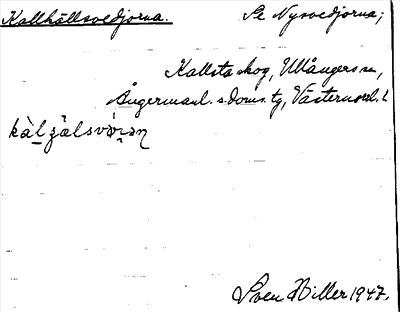 Kallhällsvedjorna. Se Nysvedjorna;
Kallsta skog, Ullångers sn,
Ångermanl. s. doms. tg, Västernorrl. l
Sven Hiller 1947.